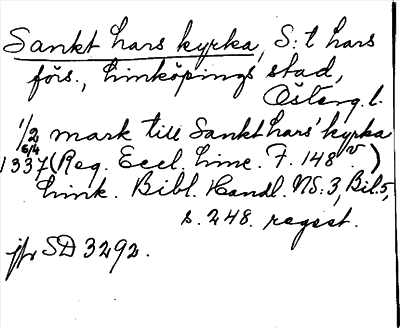 Sankt Lars kyrka, S:t Lars
förs., Linköpings stad,
Österg. l.
1/2 mark till Sankt Lars' kyrka
6/4
1337 (Reg. Eccl. Linc. F. 148 v)
Link. Bibl. Handl. NS. 3, Bil. 5,
s. 248. regest.
jfr SD 3292.